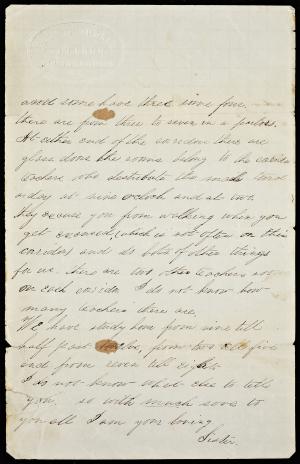 and some have three some four.
there are from three to seven in a parlor.
At either end of the corridor there are
glass doors the rooms belong to the corridor
teachers who distribute the mail
at nine oclock and at two.
they excuse you from walking when you
get excused, (which is not often on this
corridor) and do lots of other things
for us. There are two other teachers
on each corridor I do not know how
many teachers there are.
We have study hour from nine till
half past from two till five
and from seven till eight.
I do not know what else to tell
you, so with much love to
you all I am your loving
Sister.